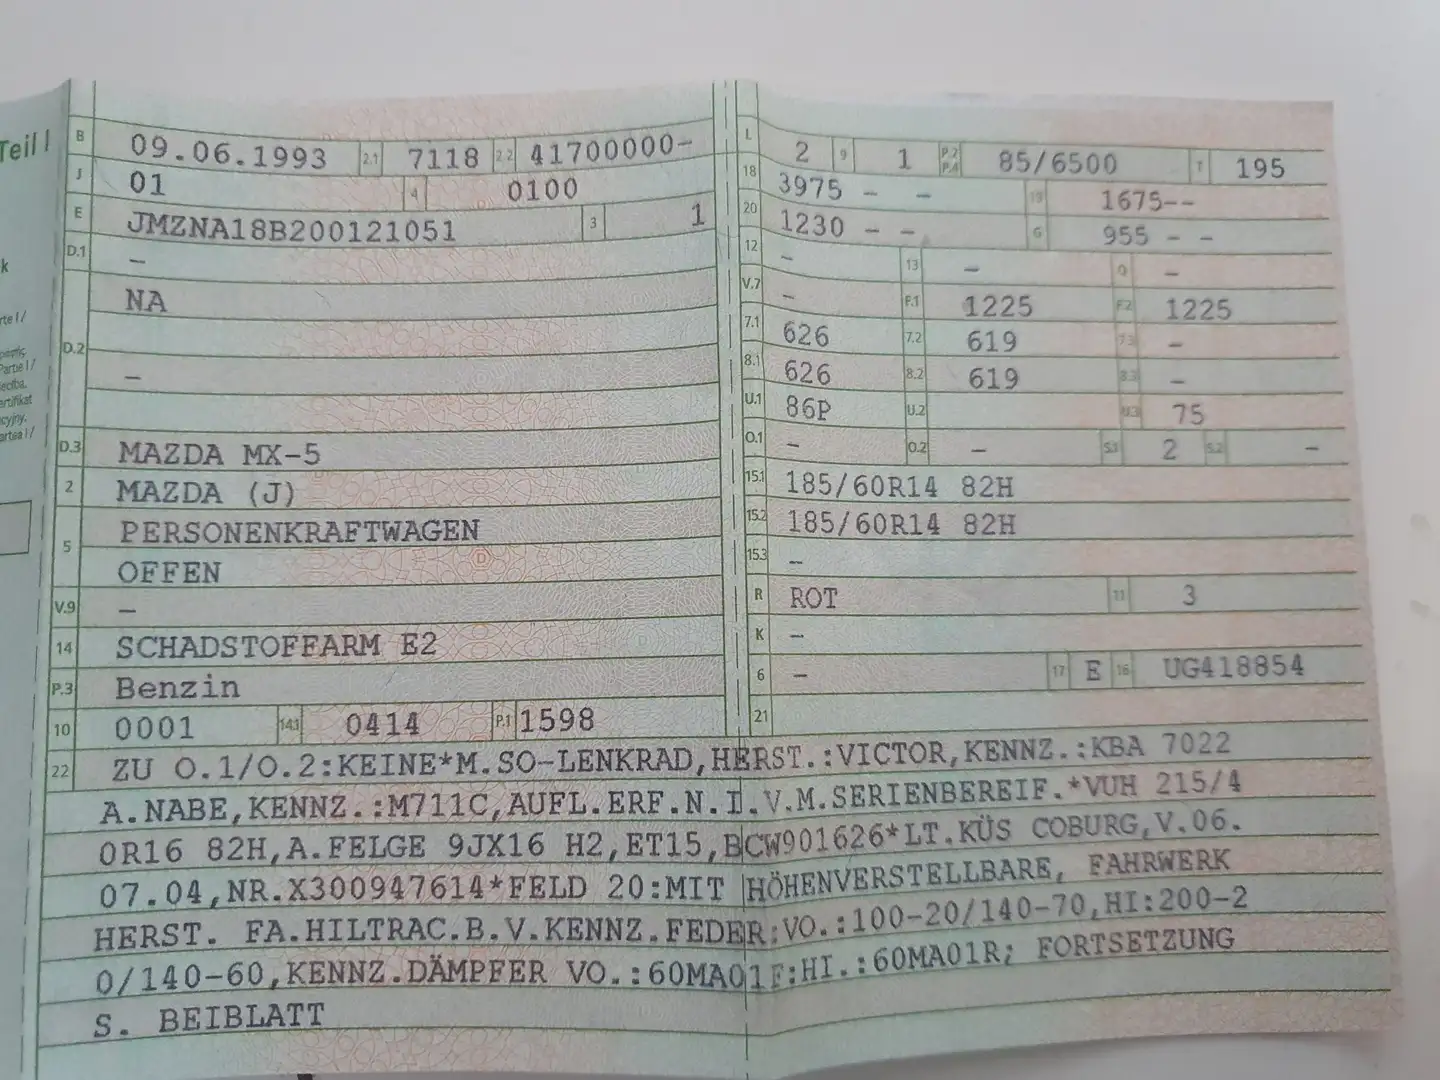 Teil I
k
rte I/
Partie I/
B 09.06.1993 2.1 7118 2.2 41700000-
J 01 4 0100
E JMZNA18B200121051 3 1
D.1 -
NA
D.2
-
D.3 MAZDA MX-5
2 MAZDA (J)
5 PERSONENKRAFTWAGEN
OFFEN
V.9 -
14 SCHADSTOFFARM E2
P.3 Benzin
10 0001 14.1 0414 P.1 1598
L 2 9 1 P.2 P.4 85/6500 T 195
18 3975 - - 19 1675--
20 1230 - - G 955 - -
12 - 13 - Q -
V.7 - F.1 1225 F.2 1225
7.1 626 7.2 619 7.3 -
8.1 626 8.2 619 8.3 -
U.1 86P U.2 U.3 75
O.1 - O.2 - S.1 2 S.2 -
15.1 185/60R14 82H
15.2 185/60R14 82H
15.3 -
R ROT 11 3
K -
6 - 17 E 16 UG418854
21
22 ZU O.1/O.2:KEINE*M.SO-LENKRAD,HERST.:VICTOR,KENNZ.:KBA 7022
A.NABE,KENNZ.:M711C,AUFL.ERF.N.I.V.M.SERIENBEREIF.*VUH 215/4
0R16 82H,A.FELGE 9JX16 H2,ET15,BCW901626*LT.KÜS COBURG,V.06.
07.04,NR.X300947614*FELD 20:MIT HÖHENVERSTELLBARE, FAHRWERK
HERST. FA.HILTRAC.B.V.KENNZ.FEDER:VO.:100-20/140-70,HI:200-2
0/140-60,KENNZ.DÄMPFER VO.:60MA01F:HI.:60MA01R; FORTSETZUNG
S. BEIBLATT